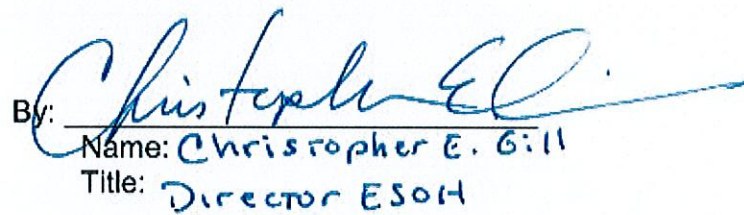 By: Christopher E
Name: Christopher E. Gill
Title: Director ESOH